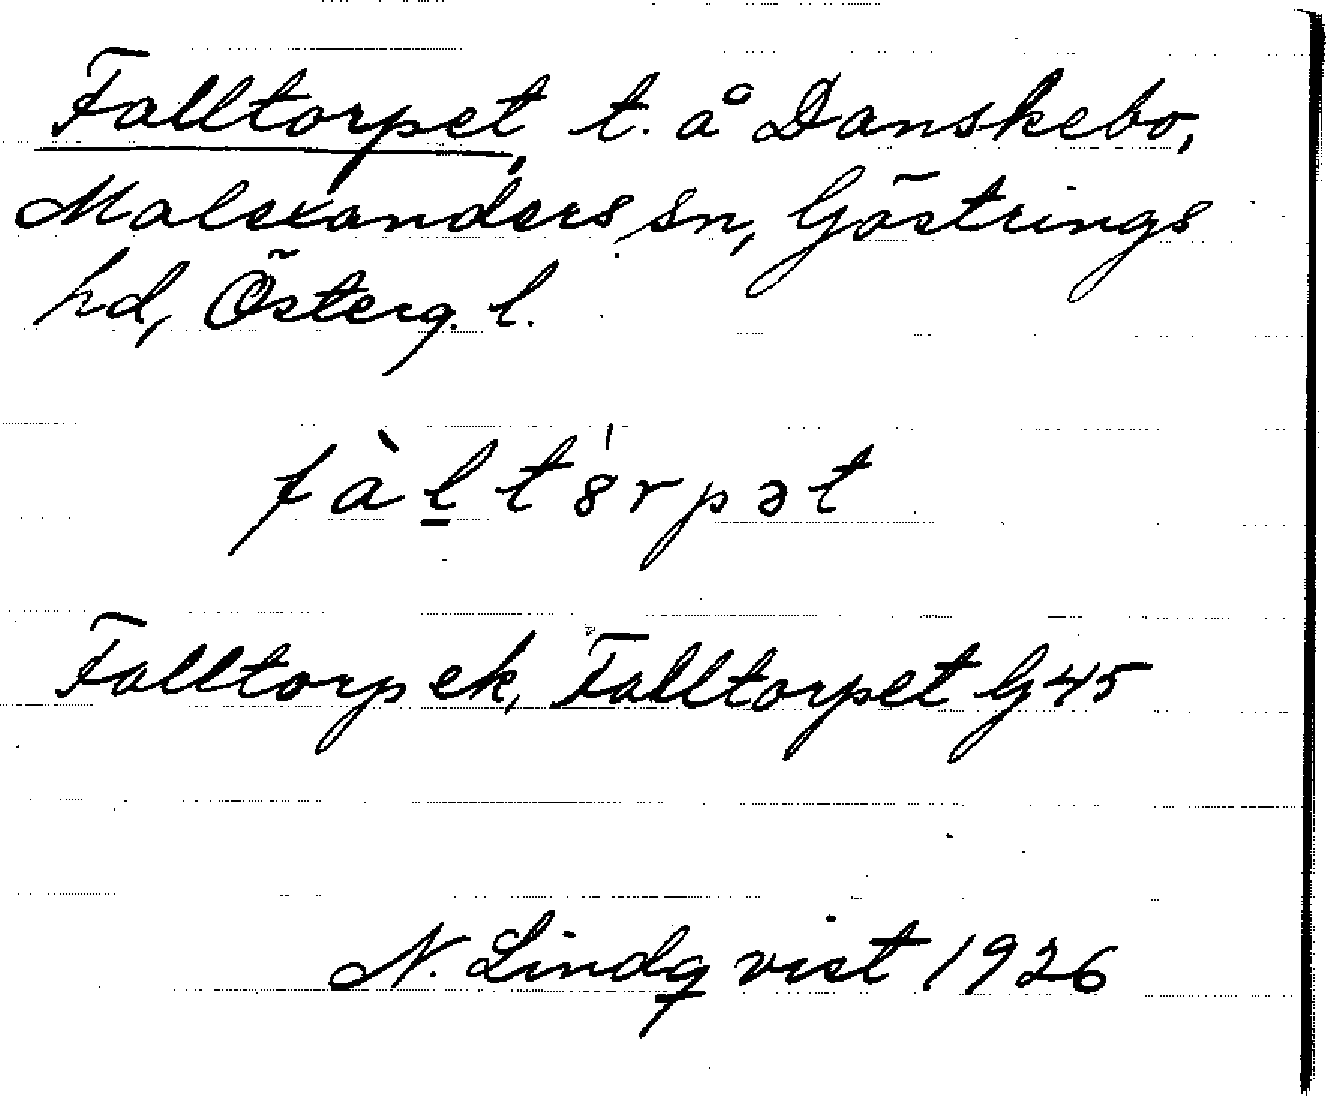 Falltorpet, t. å Danskebo,
Malexanders sn, Göstrings
hd, Österg. l.
fàl̲t8́rpət
Falltorp ek, Falltorpet G45
N. Lindqvist 1926